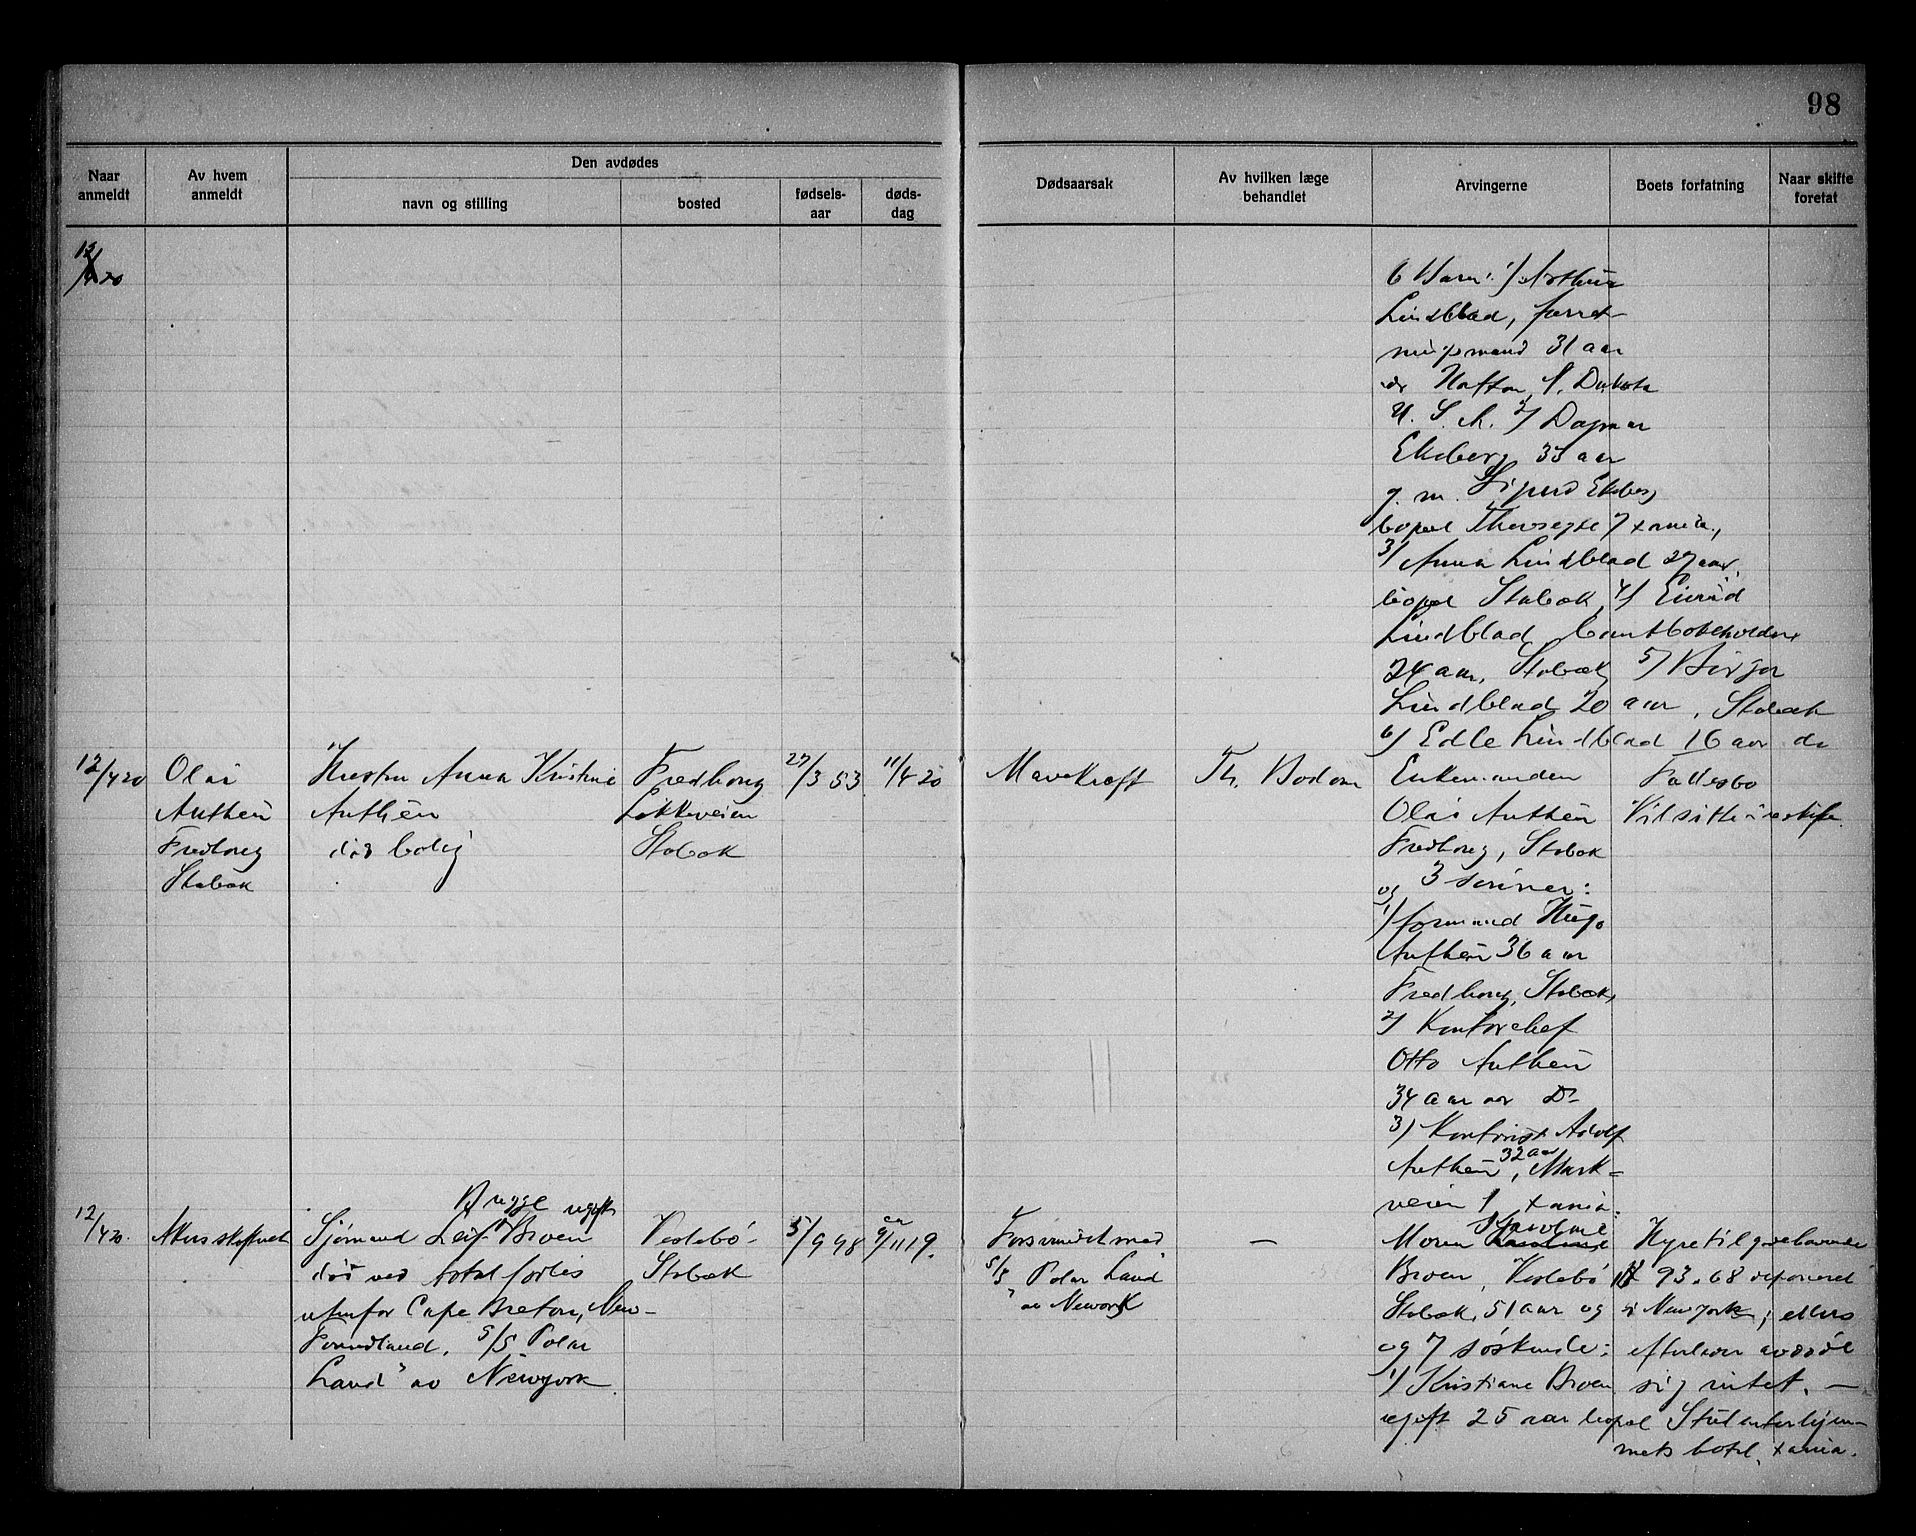 98
Naar anmeldt
Av hvem anmeldt
Den avdødes
navn og stilling
bosted
fødselsaar
dødsdag
Dødsaarsak
Av hvilken læge behandlet
Arvingerne
Boets forfatning
Naar skifte foretat
12/4 20
6 Barn: 1) Arthur
Lindblad, forret-
ningsmand 31 aar
N. Dakota
U. S. A. 2) Dagmar
Ekeberg 33 aar
g. m. Sigurd Ekeberg
bopæl Theresegt 7 Xania,
3) Anna Lindblad 27 aar,
bopæl Stabæk, 4)
Lindblad,
24 aar, Stabæk, 5) Birger
Lindblad 20 aar, Stabæk
6) Edle Lindblad 16 aar do
12/4 20
Olai
Anthén
Fredborg
Stabæk
Hustru Anna Kristine
Anthén
død bolig
Fredborg
Løkkeveien
Stabæk
27/3 53
11/4 20
Mavekræft
Th. Bodom
Enkemanden
Olai Anthén
Fredborg, Stabæk
og 3 sønner:
1) formand Hugo
Anthén 36 aar
Fredborg, Stabæk,
2) Kontorchef
Otto Anthén
34 aar av Do
3) Kontorist Adolf
Anthén, 32 aar, Mark-
veien 1 Xania.
Fællesbo
Vil sitte i uskifte.
12/4 20.
Akers skifteret
Brygge ugift
Sjømand Leif Broen
død ved forlis
utenfor Cape Breton, New-
Foundland, S/S "Polar
Land" av Newyork.
Veslebo
Stabæk
5/9 98
ca 9/11 19.
Forsvundet med
S/S "Polar Land"
av Newyork
—
Moren
Broen, Veslebo
Stabæk, 51 aar og
og 7 søskende:
1) Kristiane Broen
ugift 25 aar bopæl Studenterhjem-
mets hotel, Xania.
Hyre tilgodehavende
93.68 deponeret
i Newyork; ellers
efterlater avdøde
sig intet. —